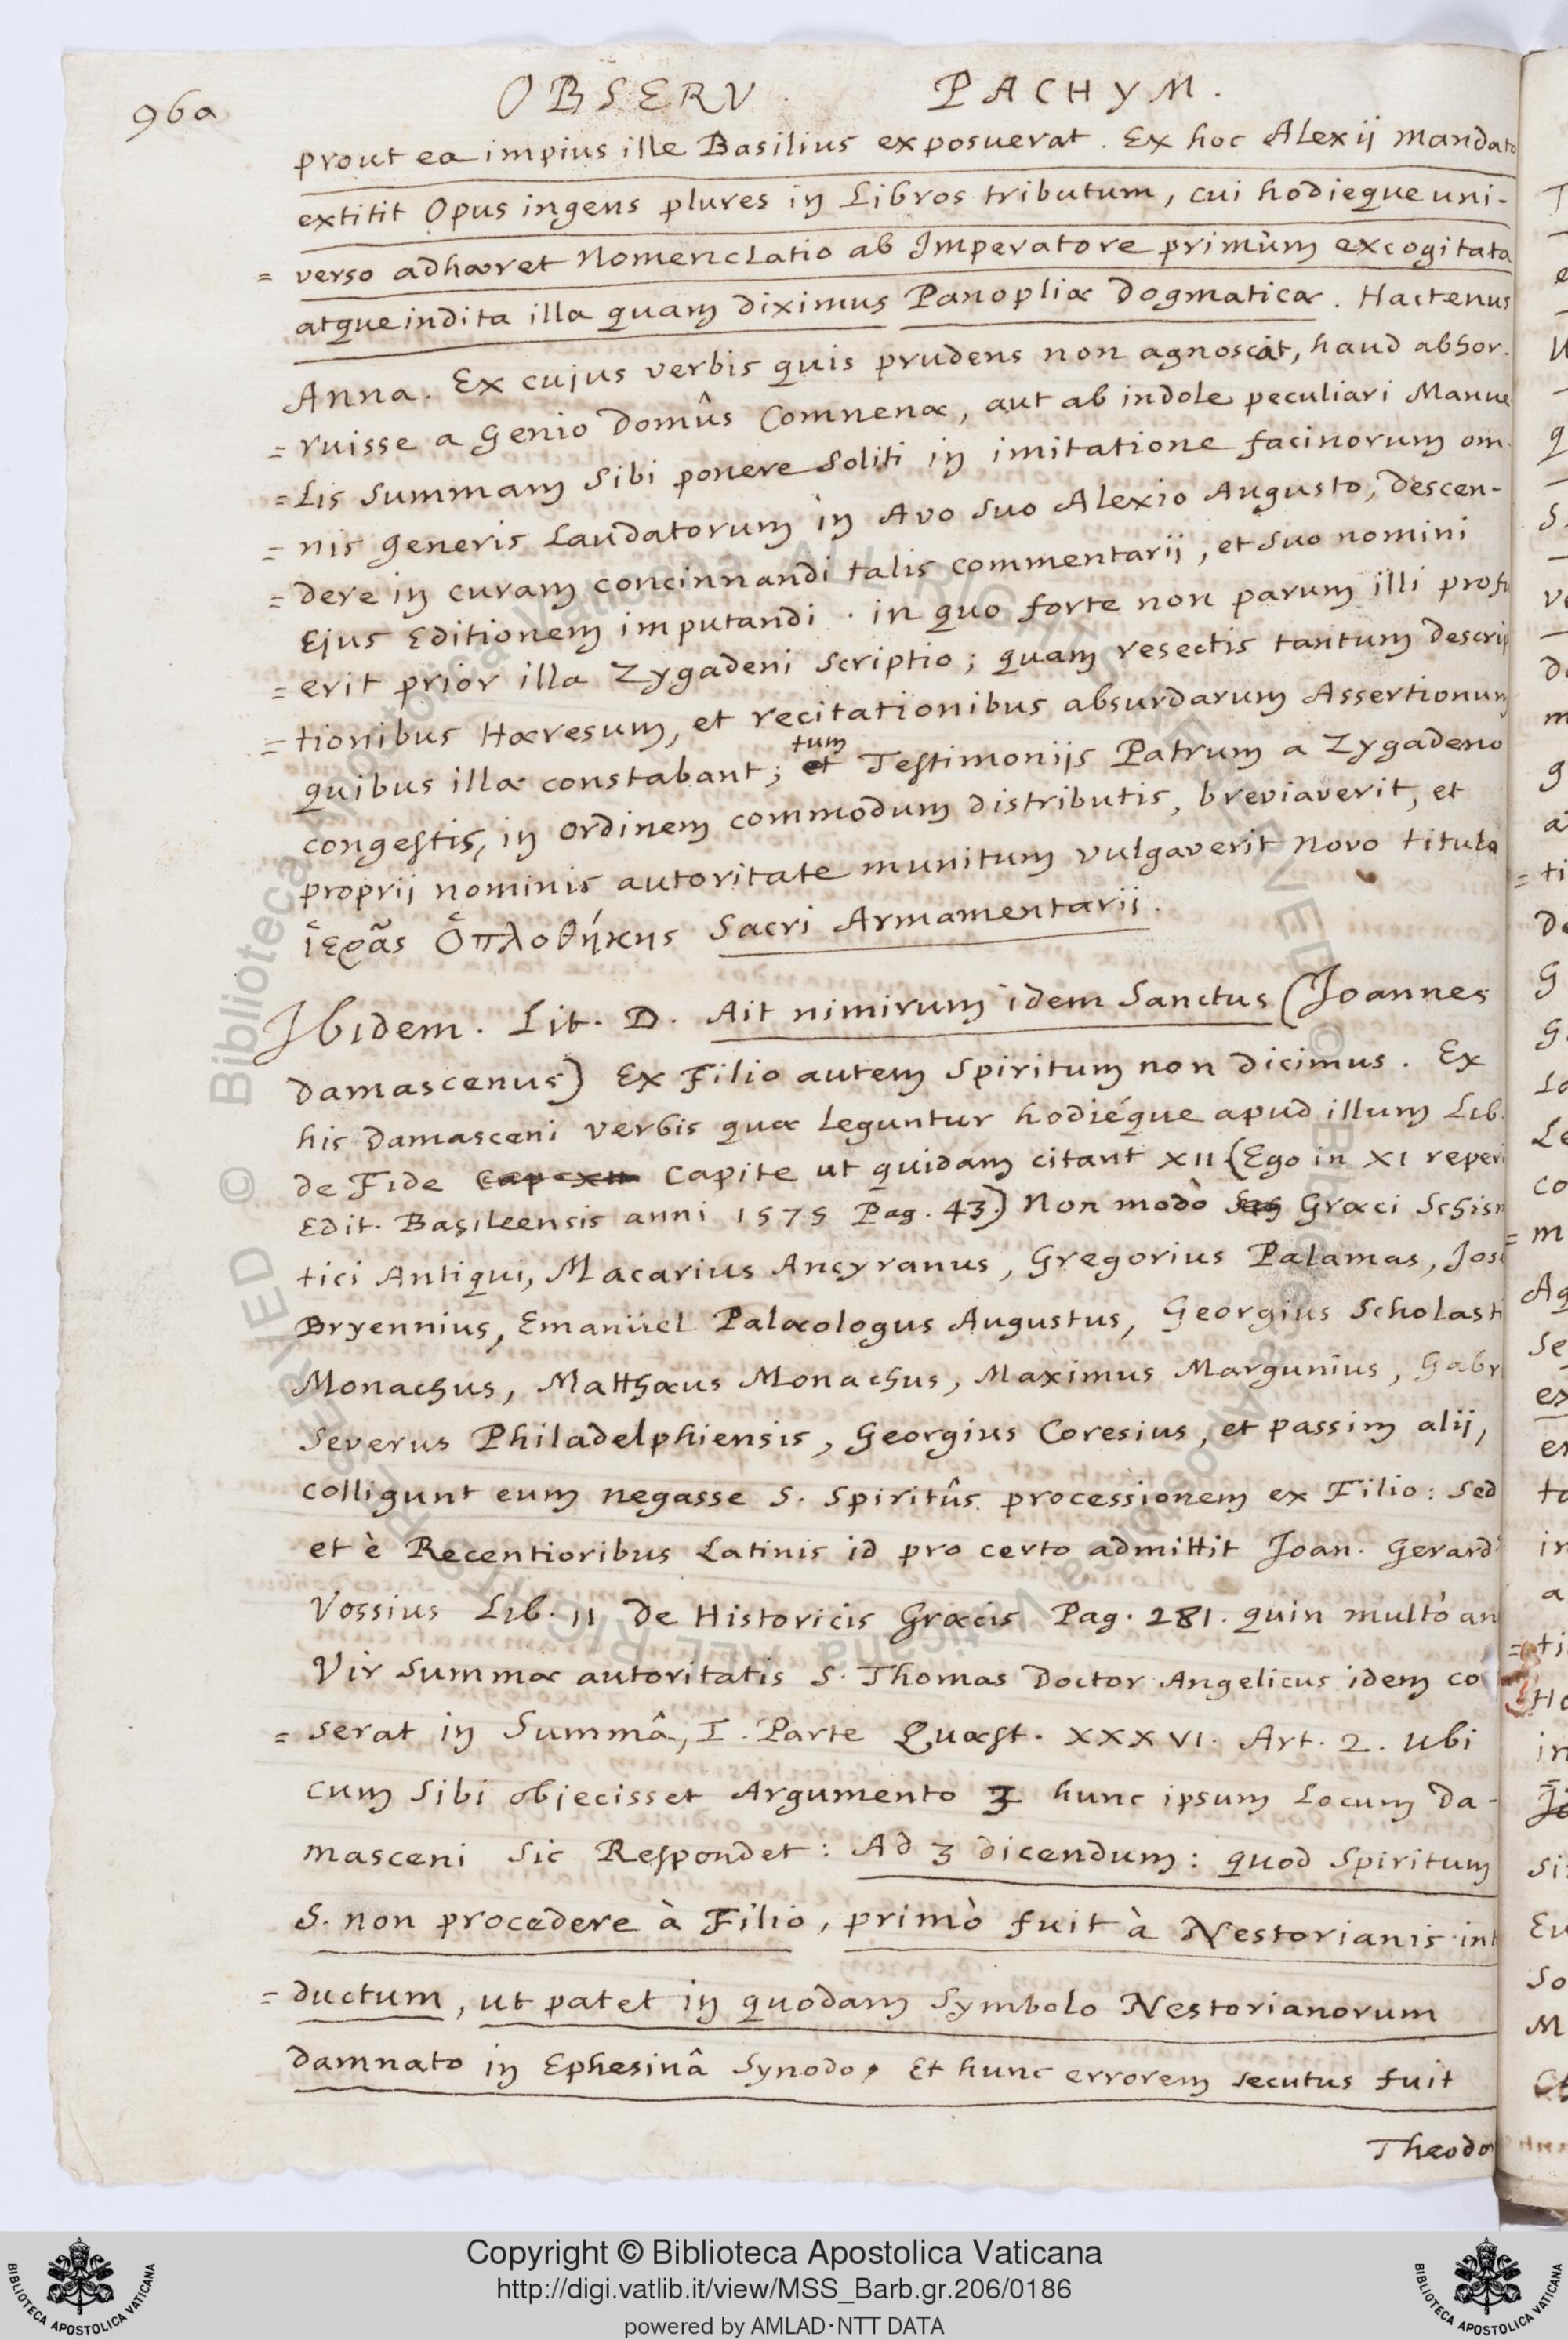 96a
OBSERV. PACHYM.
prout ea impius ille Basilius exposuerat. Ex hoc Alexij mandato
extitit Opus ingens plures in Libros tributum, cui hodieque uni-
= verso adhæret Nomenclatio ab Imperatore primùm excogitata
atque indita illa quam diximus Panopliæ Dogmaticæ. Hactenus
Anna. Ex cujus verbis quis prudens non agnoscat, haud abhor-
= ruisse a Genio Domûs Comnenæ, aut ab indole peculiari Manue
= lis summam sibi ponere soliti in imitatione facinorum om
= nis generis laudatorum in Avo suo Alexio Augusto, descen-
= dere in curam concinnandi talis commentarij, et suo nomini
Ejus Editionem imputandi. in quo forte non parum illi profu
= erit prior illa Zygadeni scriptio; quam resectis tantum descrip
= tionibus Hæresum, et recitationibus absurdarum Assertionum
quibus illæ constabant; tum Testimonijs Patrum a Zygadeno
congestis, in ordinem commodum distributis, breviaverit, et
proprij nominis autoritate munitum vulgaverit novo titulo
ἱερᾶς Ὁπλοθήκης Sacri Armamentarij.
Ibidem. Lit. D. Ait nimirum idem Sanctus (Joannes
Damascenus) Ex Filio autem Spiritum non dicimus. Ex
his Damasceni verbis quæ leguntur hodiéque apud illum Lib.
de Fide Capite ut quidam citant XII (Ego in XI reperi
Edit. Basileensis anni 1575 Pag. 43.) Non modò Græci Schism
tici Antiqui, Macarius Ancyranus, Gregorius Palamas, Jose
Bryennius, Emanüel Palæologus Augustus, Georgius Scholasti
Monachus, Matthæus Monachus, Maximus Margunius, Gabr
Severus Philadelphiensis, Georgius Coresius, et passim alij,
colligunt eum negasse S. Spiritûs processionem ex Filio: sed
et è Recentioribus Latinis id pro certo admittit Joan. Gerard
Vossius Lib. II de Historicis Græcis Pag. 281. quin multò an
Vir summæ autoritatis S. Thomas Doctor Angelicus idem co
= serat in Summâ, I. Parte Quæst. XXXVI. Art. 2. Ubi
cum sibi objecisset Argumento 3 hunc ipsum Locum Da-
masceni sic Respondet: Ad 3 dicendum: quod Spiritum
S. non procedere à Filio, primò fuit à Nestorianis int
= ductum, ut patet in quodam Symbolo Nestorianorum
damnato in Ephesinâ Synodo, Et hunc errorem secutus fuit
Theodo
Copyright © Biblioteca Apostolica Vaticana
http://digi.vatlib.it/view/MSS_Barb.gr.206/0186
powered by AMLAD·NTT DATA
BIBLIOTECA APOSTOLICA VATICANA
BIBLIOTECA APOSTOLICA VATICANA